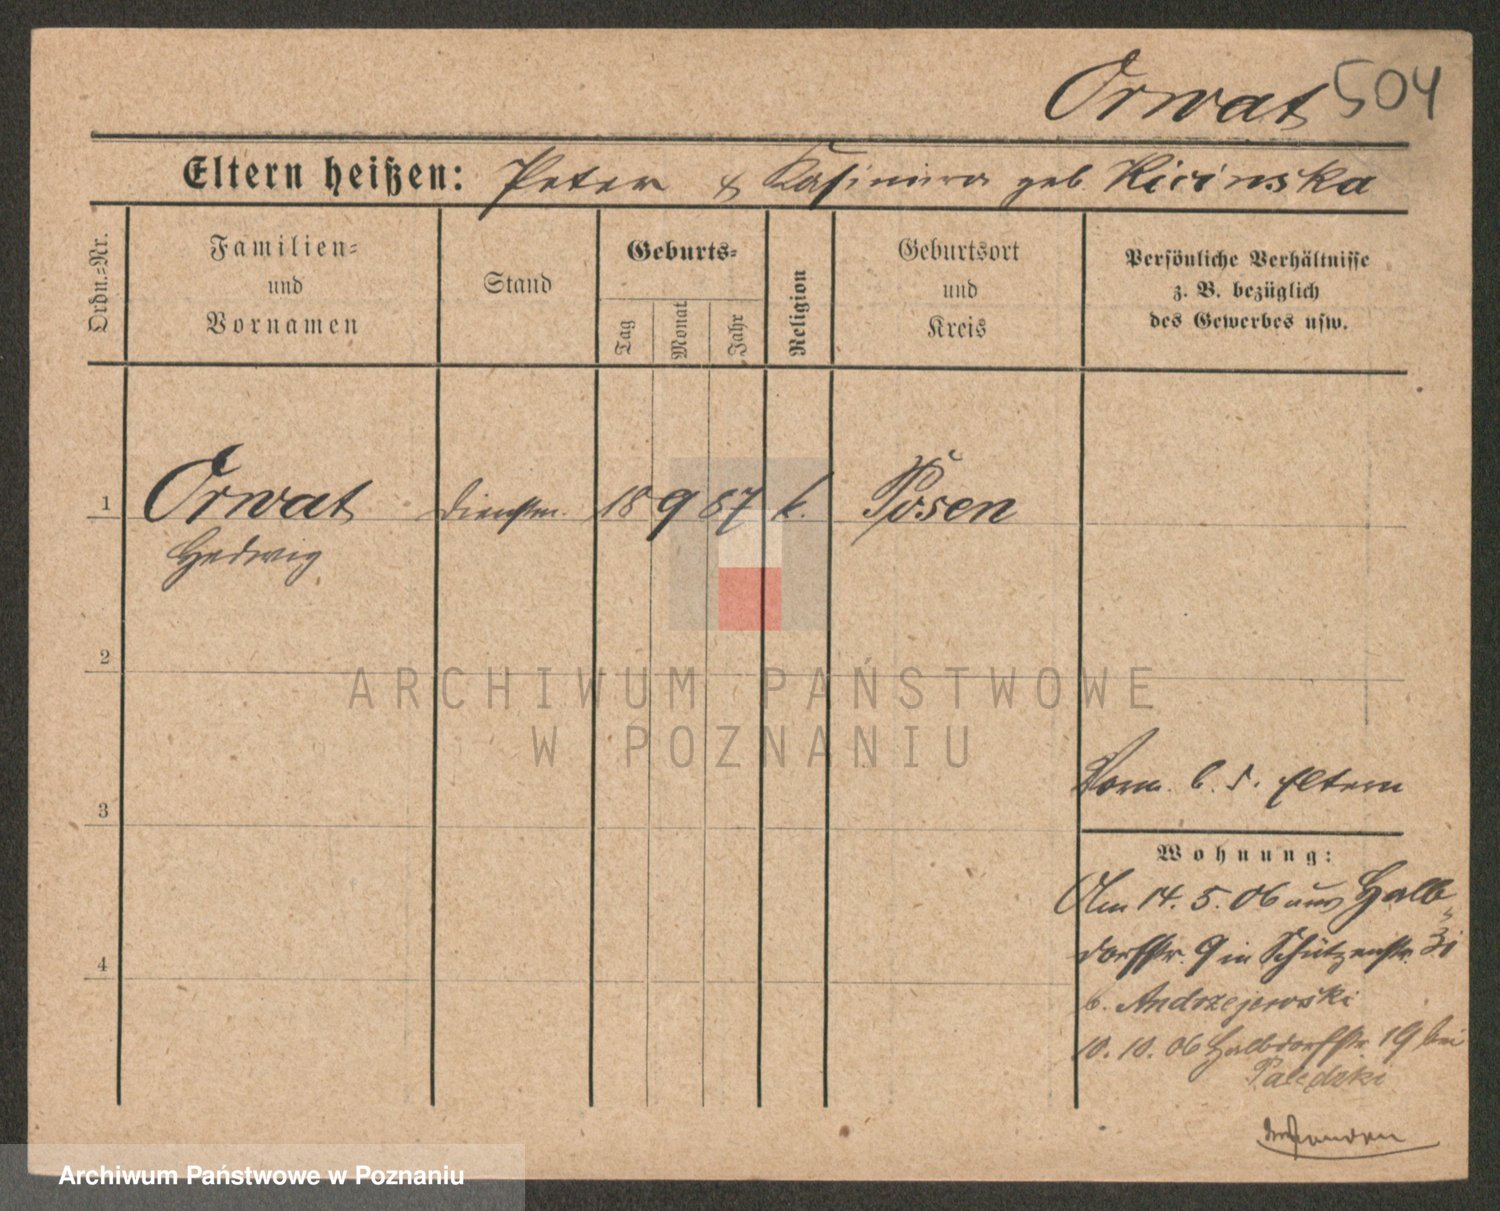 Orwat 504
Eltern heißen: Peter & Kasimira geb Kicinska
Ordn.=Nr.
Familien=
und
Vornamen
Stand
Geburts=
Tag
Monat
Jahr
Religion
Geburtsort
und
Kreis
Persönliche Verhältnisse
z. B. bezüglich
des Gewerbes usw.
1 Orwat Dienstm. 18 9 87 k. Posen
Hedwig
2
ARCHIWUM PAŃSTWOWE
W POZNANIU
b. d. Eltern
3
Wohnung:
Am 14. 5. 06 aus Halb
dorfstr. 9 in Schützenstr. 31
b. Andrzejewski
4
10. 10. 06 Halbdorfstr 19 bei
Palędzki
Archiwum Państwowe w Poznaniu